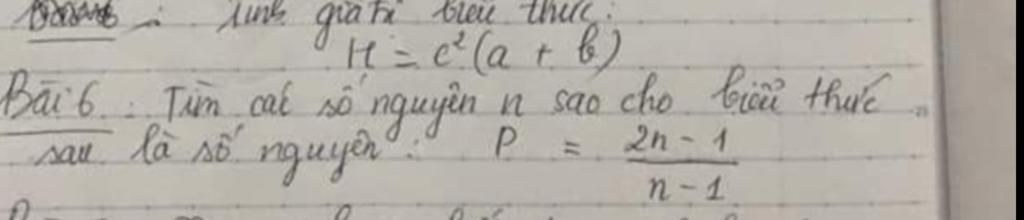 : Tính giá trị biểu thức:
H = c²(a + b)
Bài 6 : Tìm các số nguyên n sao cho biểu thức
sau là số nguyên : P = \frac{2n - 1}{n - 1}